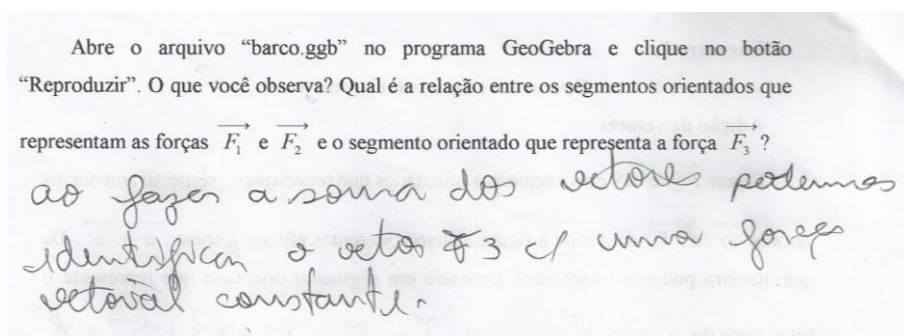 Abre o arquivo “barco.ggb” no programa GeoGebra e clique no botão
“Reproduzir”. O que você observa? Qual é a relação entre os segmentos orientados que
representam as forças F₁ e F₂ e o segmento orientado que representa a força F₃ ?
ao fazer a soma dos vetores podemos
identificar o vetor F3 c/ uma força
vetorial constante.